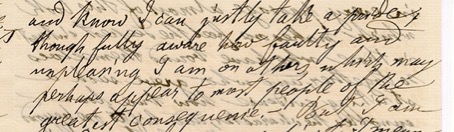 and know I can justly take a pride,
though fully aware how faulty and
unpleasing I am on others, which may
perhaps appear to most people of the
greatest consequence. – But if I am